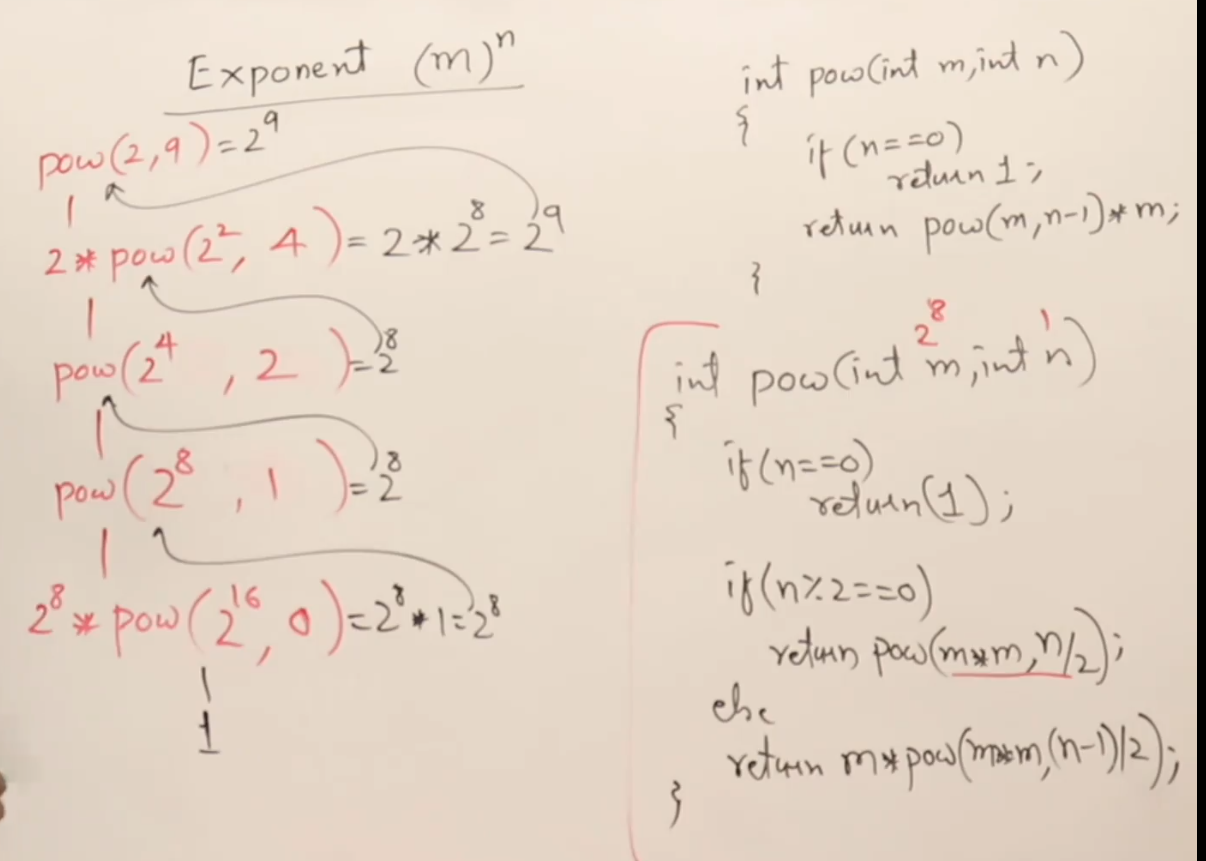 Exponent (m)ⁿ
pow(2,9)=2⁹
2*pow(2²,4)=2*2⁸=2⁹
pow(2⁴,2)=2⁸
pow(2⁸,1)=2⁸
2⁸*pow(2¹⁶,0)=2⁸*1=2⁸
1
int pow(int m,int n)
{
if(n==0)
return 1;
return pow(m,n-1)*m;
}
2⁸ 1
int pow(int m,int n)
{
if(n==0)
return(1);
if(n%2==0)
return pow(m*m,n/2);
else
return m*pow(m*m,(n-1)/2);
}